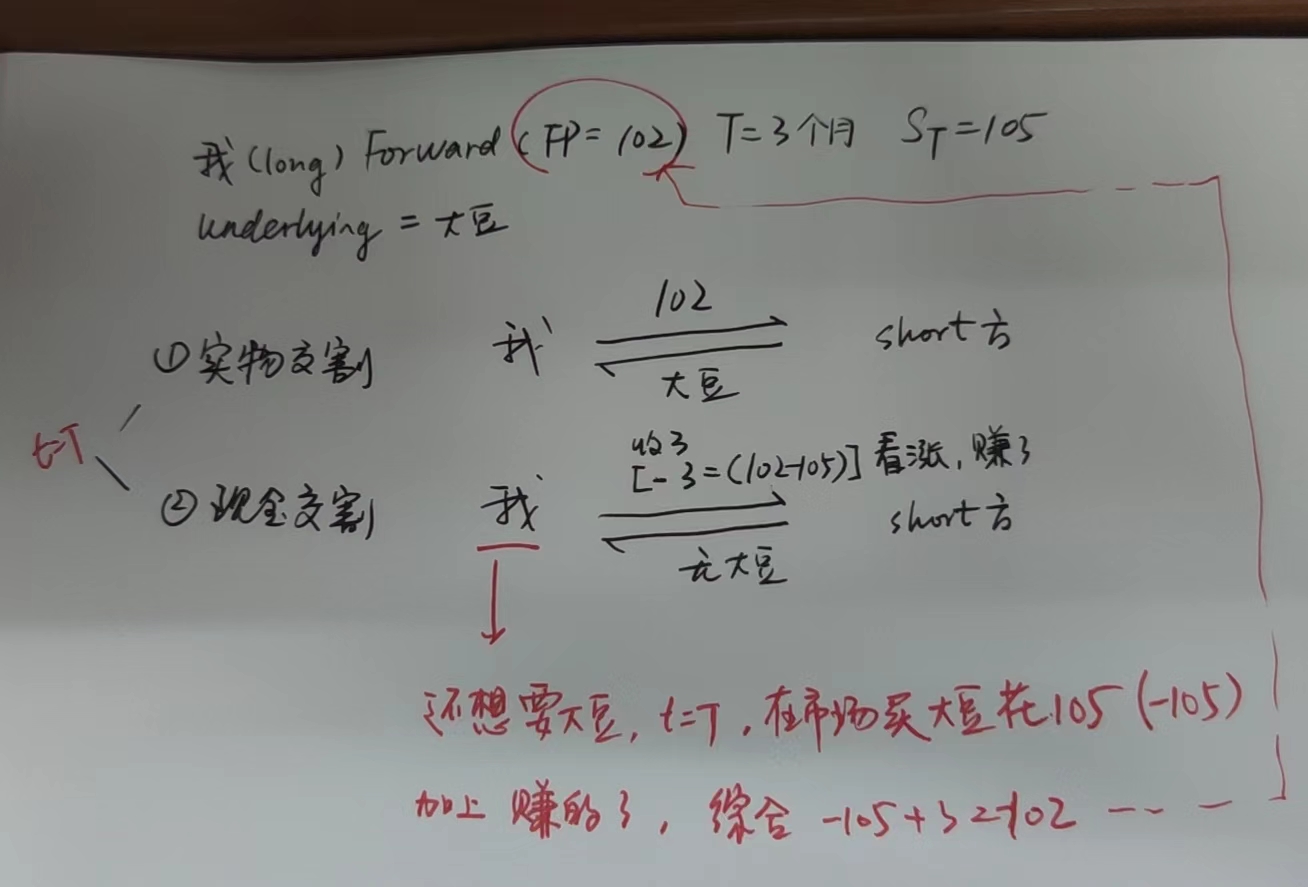 我(long) Forward (FP=102) T=3个月 S_T=105
underlying = 大豆
102
①实物交割 我 short方
大豆
t=T
收3
[-3=(102-105)] 看涨,赚3
②现金交割 我 short方
无大豆
还想要大豆, t=T, 在市场买大豆花105 (-105)
加上赚的3, 综合 -105+3=-102